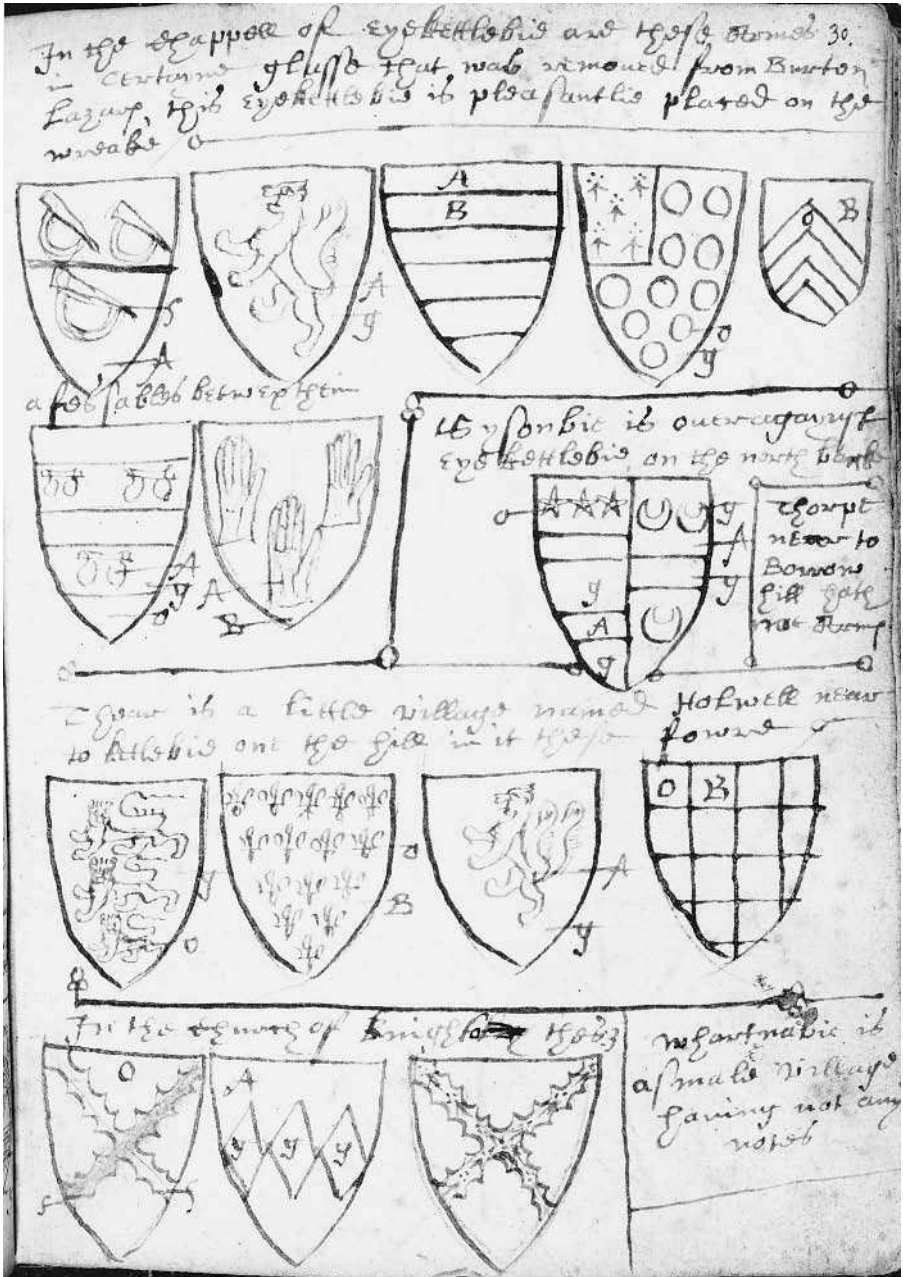 In the chappell of eyekettlebie are these Armes 30.
in certayne glasse that was remoued from Burton
Lazars, this eyekettlebie is pleasantlie placed on the
wreake
A
B
B
A
y
S
A
o
y
a fes sables betwext them
Sysonbie is ouer agaynst
eyekettlebie on the north banke
A
y
A
o
B
y
A
y
y
A
y
Thorpe
near to
Borrow
hill hath
not Armes
Thear is a little village named Holwell near
to kttlebie one the hill in it these fowre
O B
y
o
o
B
A
y
In the church of thes
whartnabie is
a smale village
having not any
notes
O
A
y y y
S